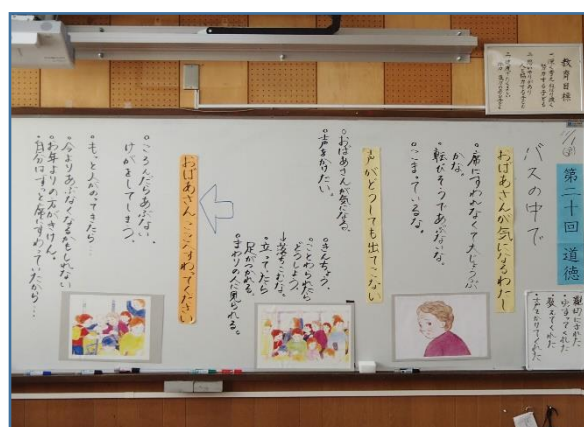 教育目標
第二十回 道徳
バスの中で
親切にされた
教えてくれた
声をかけてくれた
おばあさんが気になるわたし
。席にすわれなくて大じょうぶかな。
。転びそうであぶないな。
。こまっているな。
声がどうしても出てこない
。おばあさんが気になる。
。声をかけたい。
。きんちょう。
。ことわられたらどうしよう。
→落ちこむな。
。立ってたら足がつかれる。
。まわりの人に見られる。
おばあさん、ここへすわってください
。ころんだらあぶない。
けがをしてしまう。
。もっと人がのってきたら…
。今よりあぶなくなるかもしれない
。お年よりの方がきけん。
。自分はずっと席にすわっていたから…